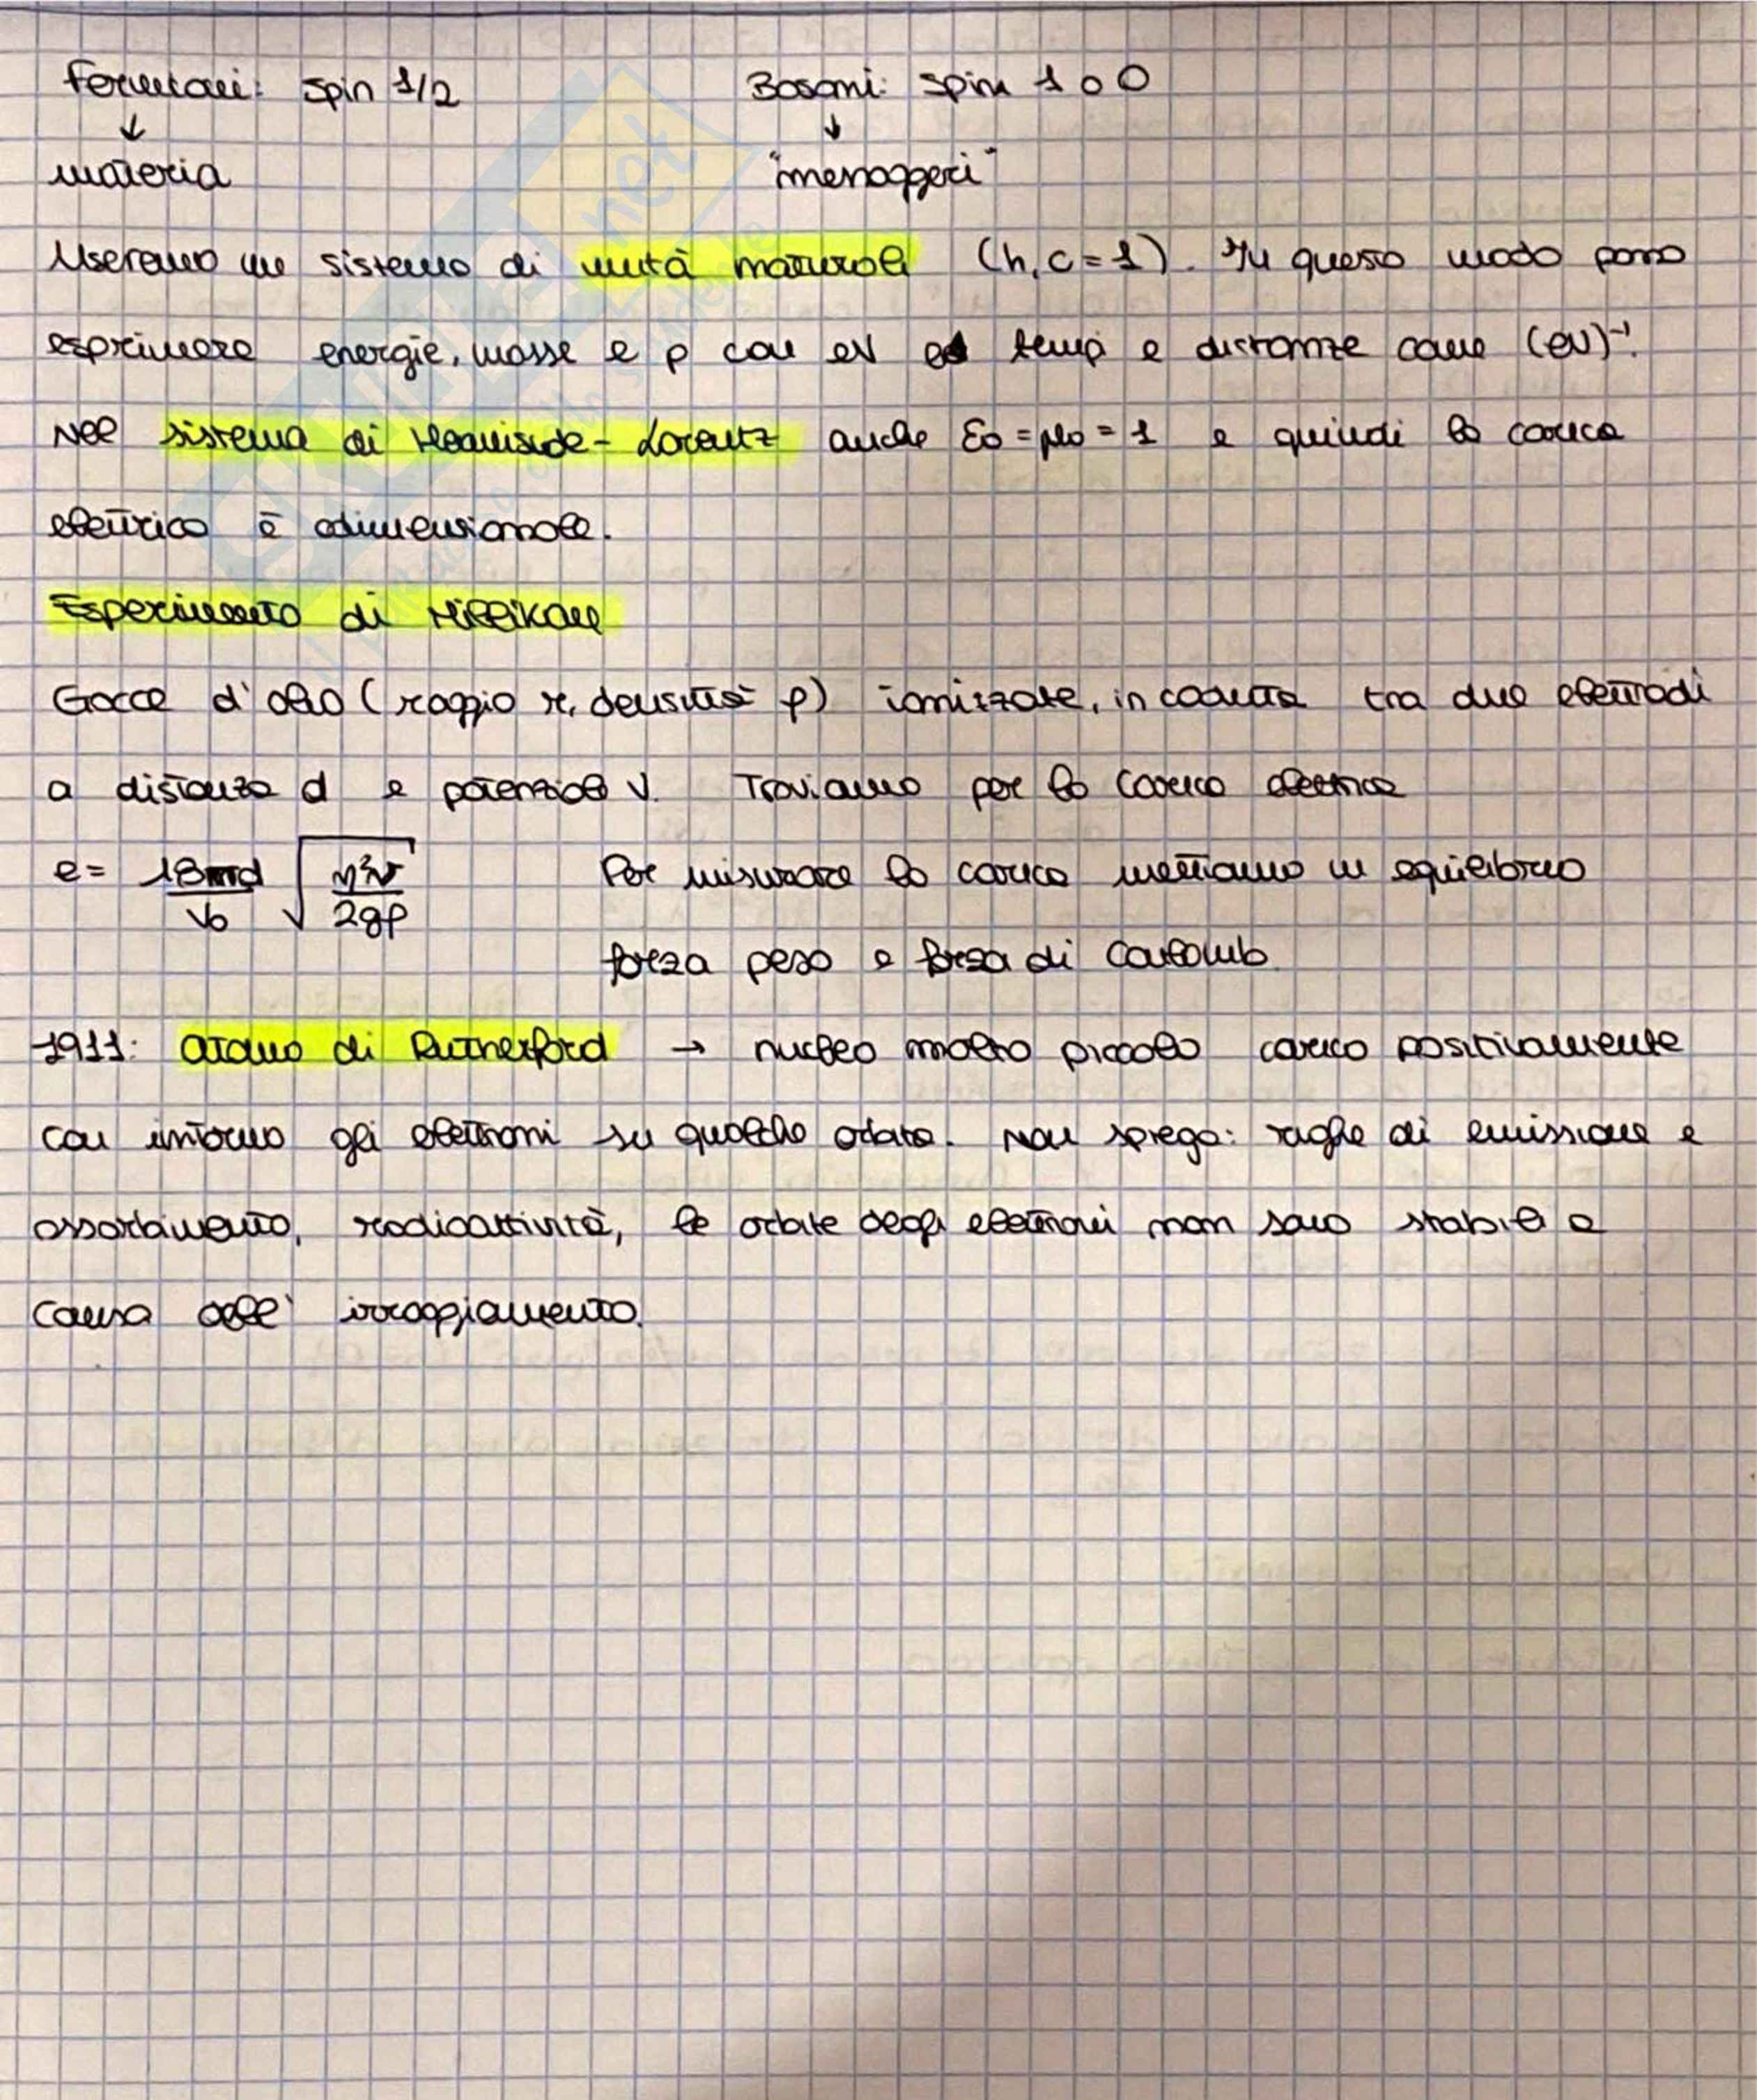 Fermioni: spin 1/2 Bosoni: spin 1 o 0
↓ ↓
materia "messaggeri"
Useremo un sistema di unità naturali (h, c = 1). In questo modo posso
esprimere energie, masse e p con eV e tempi e distanze come (eV)⁻¹.
Nel sistema di Heaviside - Lorentz anche ε0 = μ0 = 1 e quindi la carica
elettrica è adimensionale.
Esperimento di Millikan
Gocce d'olio (raggio r, densità ρ) ionizzate, in caduta tra due elettrodi
a distanza d e potenziale V. Troviamo per la carica elettrica
e = 18πd/V0 √(η³v/2gρ) Per misurare la carica mettiamo in equilibrio
forza peso e forza di Coulomb.
1911: atomo di Rutherford → nucleo molto piccolo carico positivamente
con intorno gli elettroni su qualche orbita. Non spiega: righe di emissione e
assorbimento, radioattività, le orbite degli elettroni non sono stabili a
causa dell' irraggiamento.